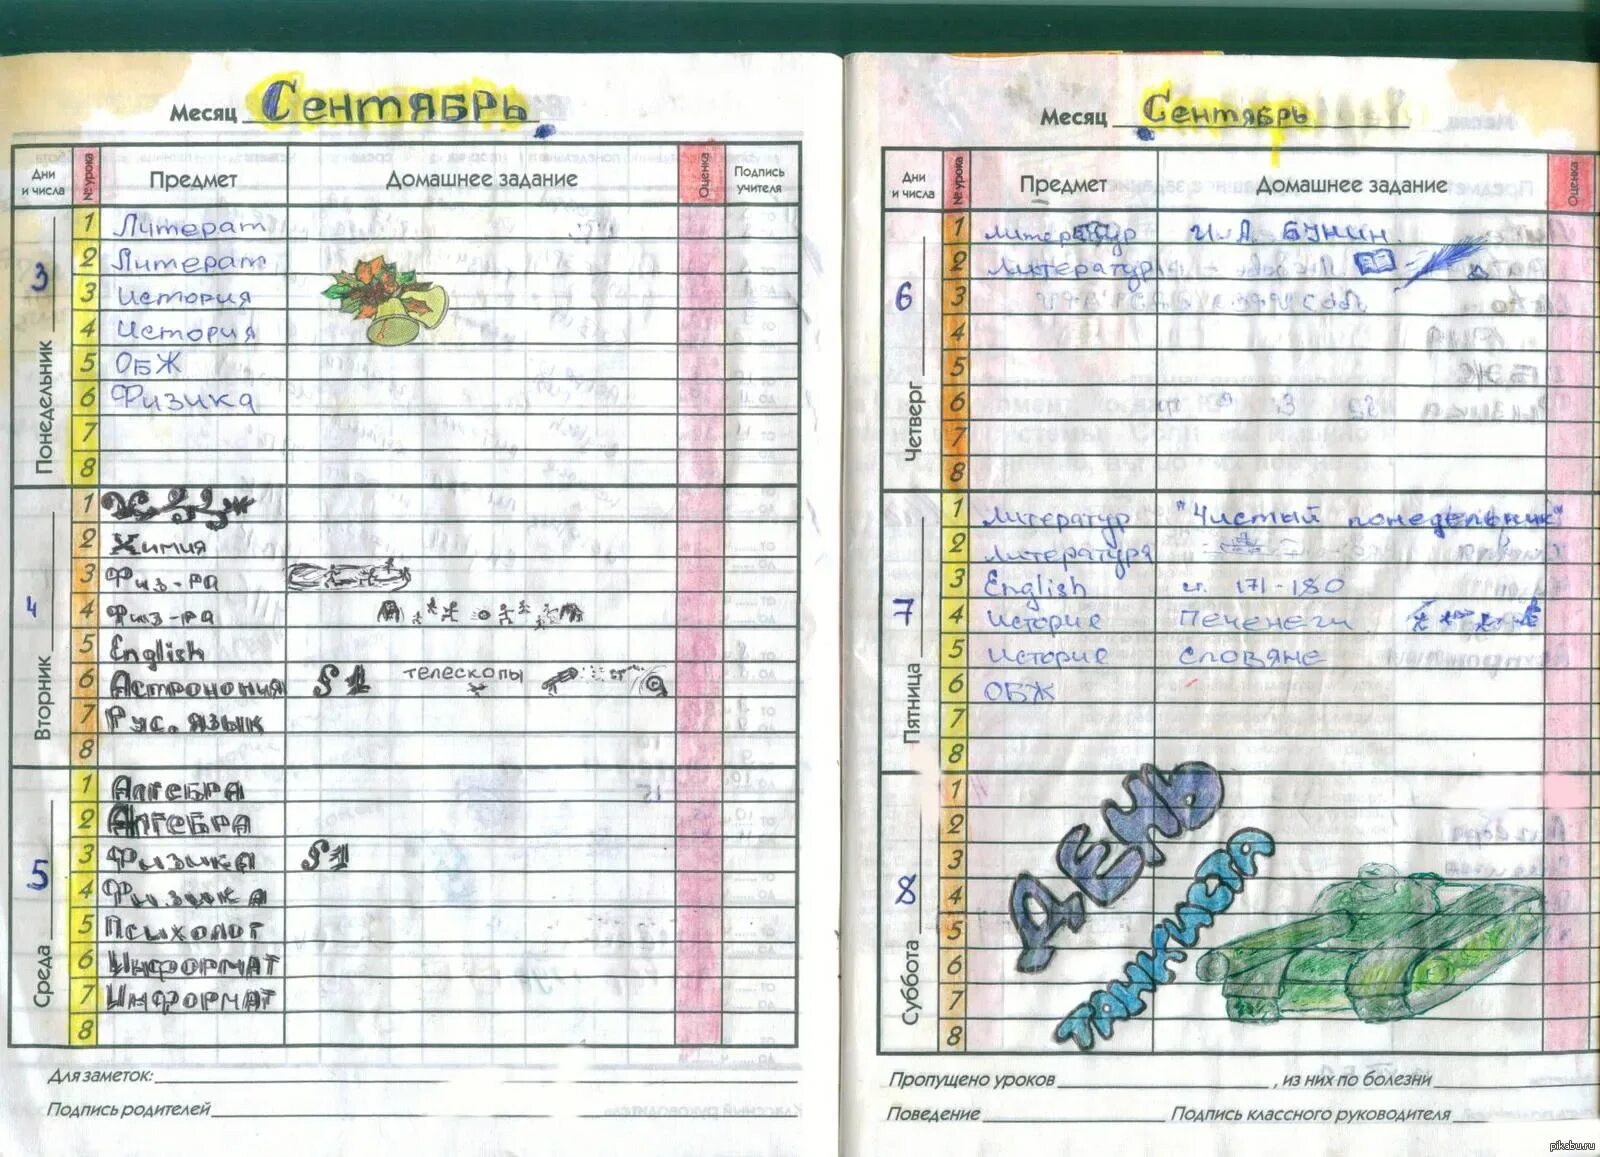 Месяц Сентябрь
Дни и числа № урока Предмет Домашнее задание Оценка Подпись учителя
Понедельник 3
1 Литерат
2 Литерат
3 История
4 История
5 ОБЖ
6 Физика
7
8
Вторник 4
1
2 Химия
3 Физ-ра
4 Физ-ра
5 English
6 Астрономия §1 телескопы
7 Рус. язык
8
Среда 5
1 Алгебра
2 Алгебра
3 Физика §1
4 Физика
5 Психолог
6 Информат
7 Информат
8
Для заметок:
Подпись родителей
Месяц Сентябрь
Дни и числа № урока Предмет Домашнее задание Оценка
Четверг 6
1 Литератур И.А. БУНИН
2 Литератур
3
4
5
6
7
8
Пятница 7
1 Литератур "Чистый понедельник"
2 Литература
3 English ст. 171-180
4 История Печенеги
5 История Словяне
6 ОБЖ
7
8
Суббота 8
1
2
3
4
5
6
7
8
ДЕНЬ
ТАНКИСТА
Пропущено уроков , из них по болезни
Поведение Подпись классного руководителя
pikabu.ru